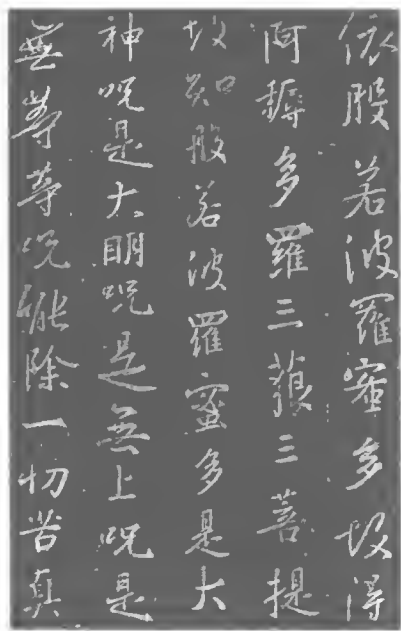 依般若波羅蜜多故得
阿耨多羅三藐三菩提
故知般若波羅蜜多是大
神呪是大明呪是無上呪是
無等等呪能除一切苦真